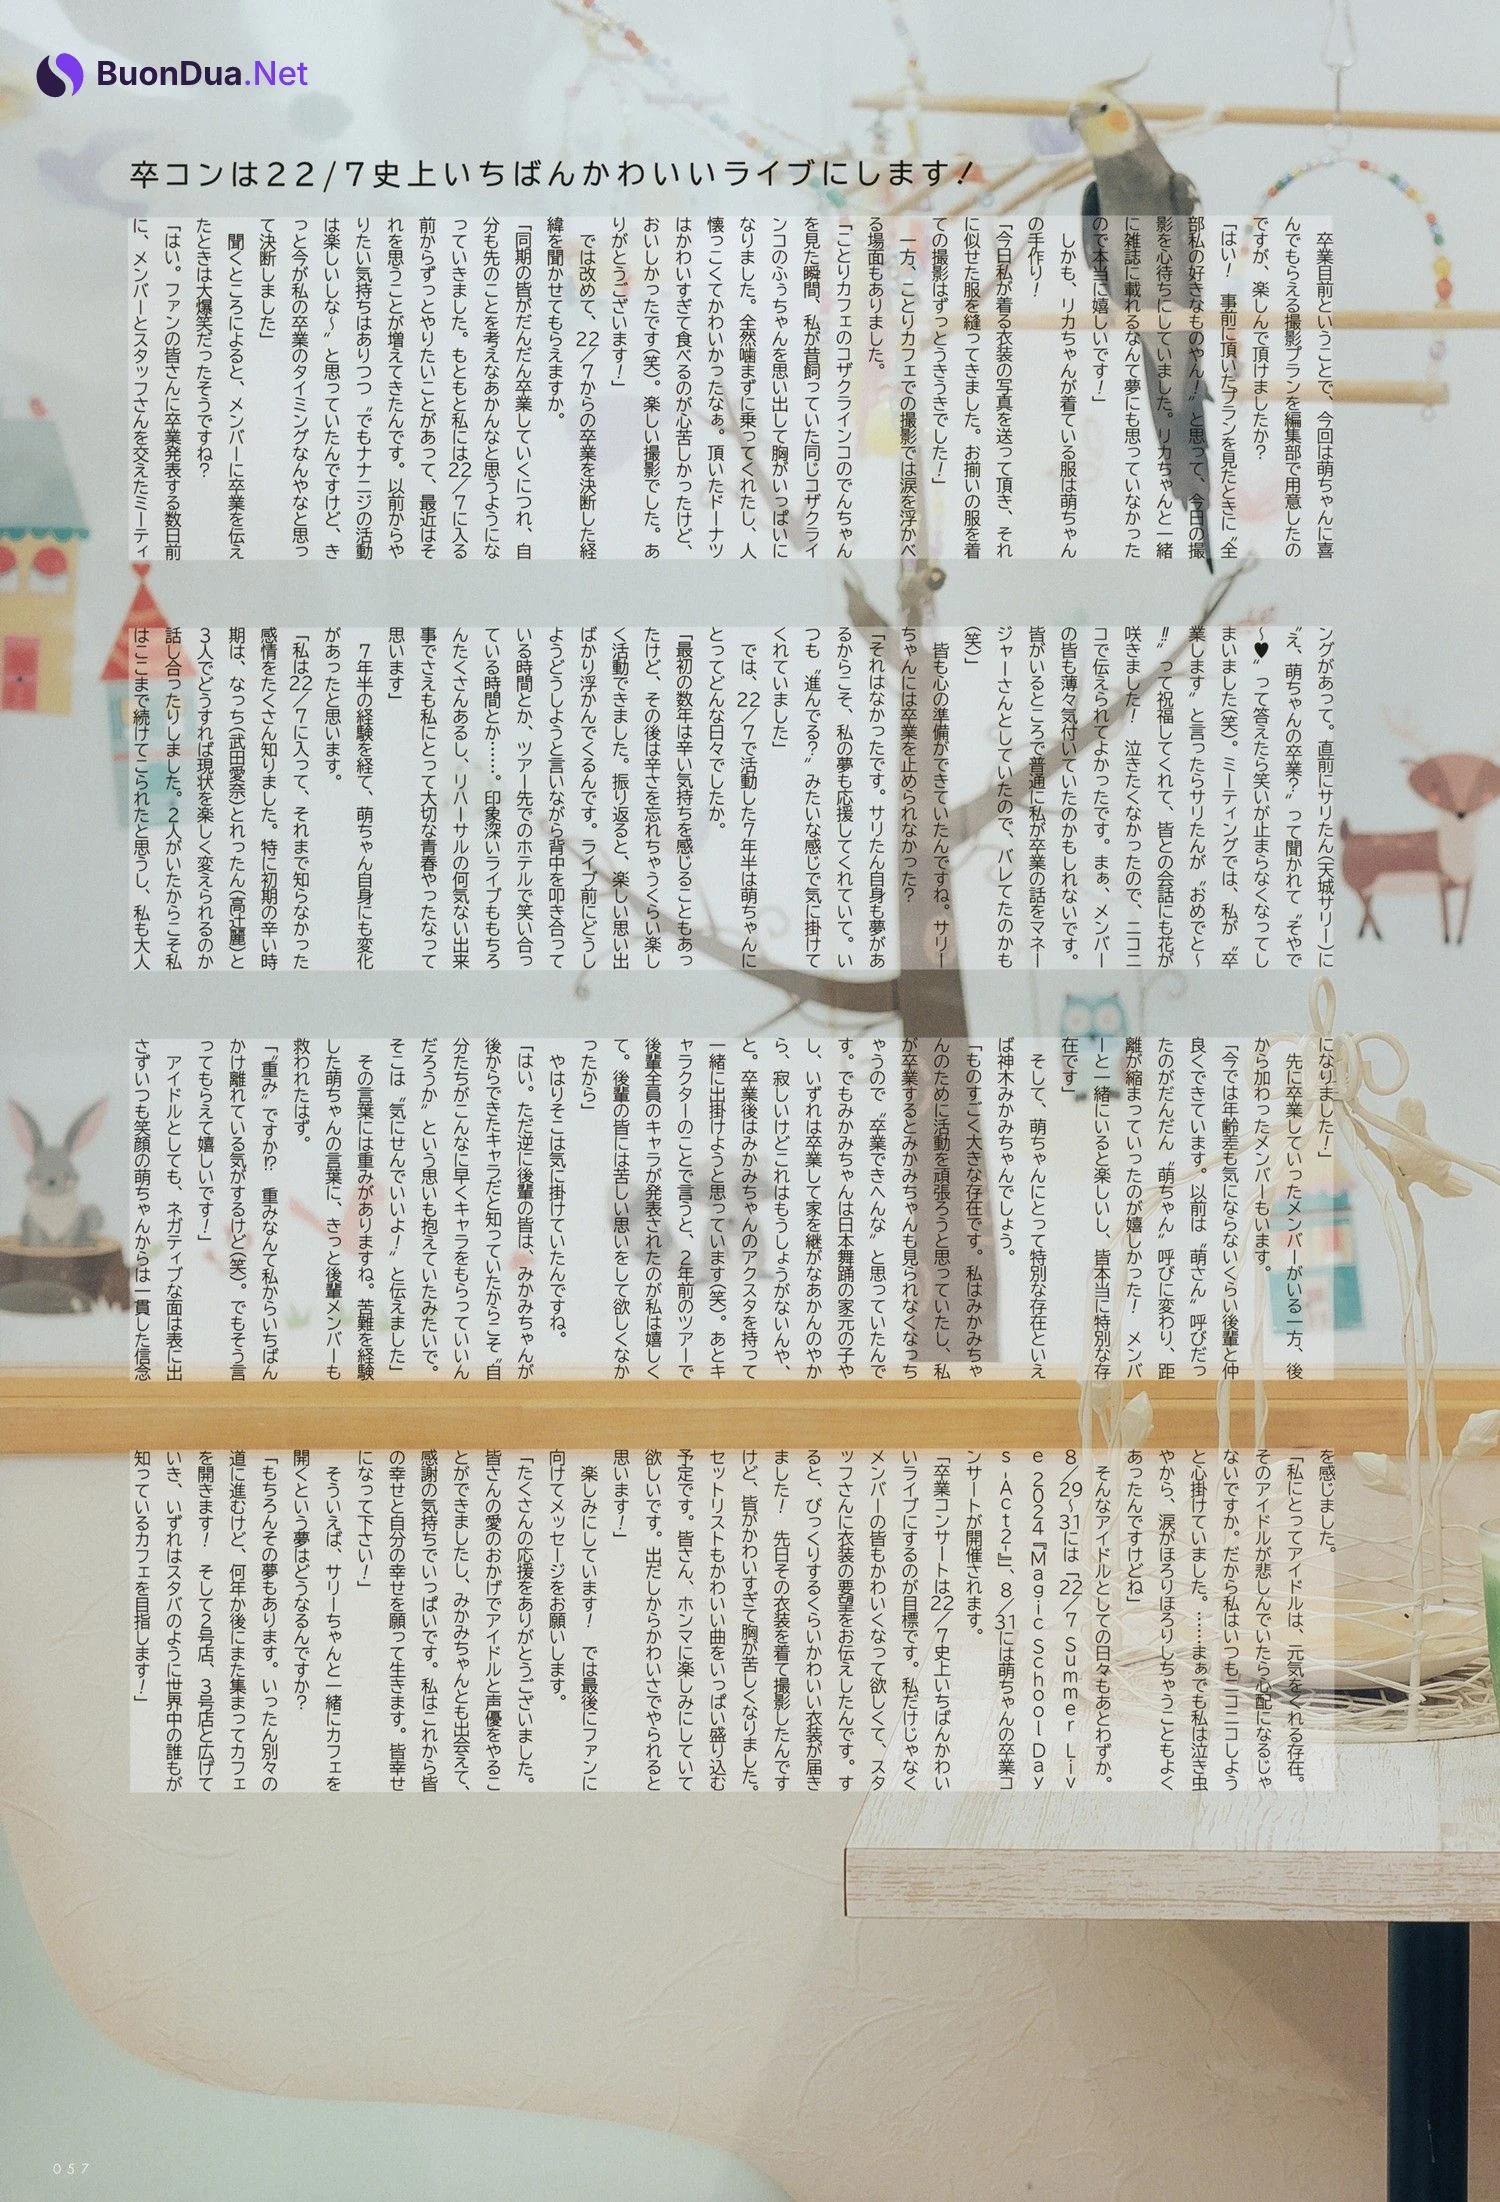 BuonDua.Net
卒コンは22/7史上いちばんかわいいライブにします!
卒業目前ということで、今回は萌ちゃんに喜
んでもらえる撮影プランを編集部で用意したの
ですが、楽しんで頂けましたか?
「はい! 事前に頂いたプランを見たときに〝全
部私の好きなものやん!〟と思って、今日の撮
影を心待ちにしていました。リカちゃんと一緒
に雑誌に載れるなんて夢にも思っていなかった
ので本当に嬉しいです!」
しかも、リカちゃんが着ている服は萌ちゃん
の手作り!
「今日私が着る衣装の写真を送って頂き、それ
に似せた服を縫ってきました。お揃いの服を着
ての撮影はずっとうきうきでした!」
一方、ことりカフェでの撮影では涙を浮かべ
る場面もありました。
「ことりカフェのコザクラインコのでんちゃん
を見た瞬間、私が昔飼っていた同じコザクライ
ンコのふぅちゃんを思い出して胸がいっぱいに
なりました。全然噛まずに乗ってくれたし、人
懐っこくてかわいかったなぁ。頂いたドーナツ
はかわいすぎて食べるのが心苦しかったけど、
おいしかったです(笑)。楽しい撮影でした。あ
りがとうございます!」
では改めて、22/7からの卒業を決断した経
緯を聞かせてもらえますか。
「同期の皆がだんだん卒業していくにつれ、自
分も先のことを考えなあかんなと思うようにな
っていきました。もともと私には22/7に入る
前からずっとやりたいことがあって、最近はそ
れを思うことが増えてきたんです。以前からや
りたい気持ちはありつつ〝でもナナニジの活動
は楽しいしな〜〟と思っていたんですけど、き
っと今が私の卒業のタイミングなんやなと思っ
て決断しました」
聞くところによると、メンバーに卒業を伝え
たときは大爆笑だったそうですね?
「はい。ファンの皆さんに卒業発表する数日前
に、メンバーとスタッフさんを交えたミーティ
ングがあって。直前にサリたん(天城サリー)に
〝え、萌ちゃんの卒業?〟って聞かれて〝そやで
〜♥〟って答えたら笑いが止まらなくなってし
まいました(笑)。ミーティングでは、私が〝卒
業します〟と言ったらサリたんが〝おめでと〜
!!〟って祝福してくれて、皆との会話にも花が
咲きました! 泣きたくなかったので、ニコニ
コで伝えられてよかったです。まぁ、メンバー
の皆も薄々気付いていたのかもしれないです。
皆がいるところで普通に私が卒業の話をマネー
ジャーさんとしていたので、バレてたのかも
(笑)」
皆も心の準備ができていたんですね。サリー
ちゃんには卒業を止められなかった?
「それはなかったです。サリたん自身も夢があ
るからこそ、私の夢も応援してくれていて。い
つも〝進んでる?〟みたいな感じで気に掛けて
くれていました」
では、22/7で活動した7年半は萌ちゃんに
とってどんな日々でしたか。
「最初の数年は辛い気持ちを感じることもあっ
たけど、その後は辛さを忘れちゃうくらい楽し
く活動できました。振り返ると、楽しい思い出
ばかり浮かんでくるんです。ライブ前にどうし
ようどうしようと言いながら背中を叩き合って
いる時間とか、ツアー先でのホテルで笑い合っ
ている時間とか……。印象深いライブももちろ
んたくさんあるし、リハーサルの何気ない出来
事でさえも私にとって大切な青春やったなって
思います」
7年半の経験を経て、萌ちゃん自身にも変化
があったと思います。
「私は22/7に入って、それまで知らなかった
感情をたくさん知りました。特に初期の辛い時
期は、なっち(武田愛奈)とれったん(高辻麗)と
3人でどうすれば現状を楽しく変えられるのか
話し合ったりしました。2人がいたからこそ私
はここまで続けてこられたと思うし、私も大人
になりました!」
先に卒業していったメンバーがいる一方、後
から加わったメンバーもいます。
「今では年齢差も気にならないくらい後輩と仲
良くできています。以前は〝萌さん〟呼びだっ
たのがだんだん〝萌ちゃん〟呼びに変わり、距
離が縮まっていったのが嬉しかった! メンバ
ーと一緒にいると楽しいし、皆本当に特別な存
在です」
そして、萌ちゃんにとって特別な存在といえ
ば神木みかみちゃんでしょう。
「ものすごく大きな存在です。私はみかみちゃ
んのために活動を頑張ろうと思っていたし、私
が卒業するとみかみちゃんも見られなくなっち
ゃうので〝卒業できへんな〟と思っていたんで
す。でもみかみちゃんは日本舞踊の家元の子や
し、いずれは卒業して家を継がなあかんのやか
ら、寂しいけどこれはもうしょうがないんや、
と。卒業後はみかみちゃんのアクスタを持って
一緒に出掛けようと思っています(笑)。あとキ
ャラクターのことで言うと、2年前のツアーで
後輩全員のキャラが発表されたのが私は嬉しく
て。後輩の皆には苦しい思いをして欲しくなか
ったから」
やはりそこは気に掛けていたんですね。
「はい。ただ逆に後輩の皆は、みかみちゃんが
後からできたキャラだと知っていたからこそ〝自
分たちがこんなに早くキャラをもらっていいん
だろうか〟という思いも抱えていたみたいで。
そこは〝気にせんでいいよ!〟と伝えました」
その言葉には重みがありますね。苦難を経験
した萌ちゃんの言葉に、きっと後輩メンバーも
救われたはず。
「〝重み〟ですか!? 重みなんて私からいちばん
かけ離れている気がするけど(笑)。でもそう言
ってもらえて嬉しいです!」
アイドルとしても、ネガティブな面は表に出
さずいつも笑顔の萌ちゃんからは一貫した信念
を感じました。
「私にとってアイドルは、元気をくれる存在。
そのアイドルが悲しんでいたら心配になるじゃ
ないですか。だから私はいつもニコニコしよう
と心掛けていました。……まぁでも私は泣き虫
やから、涙がほろりほろりしちゃうこともよく
あったんですけどね」
そんなアイドルとしての日々もあとわずか。
8/29〜31には「22/7 Summer Liv
e 2024『Magic School Day
s -Act2-』、8/31には萌ちゃんの卒業コ
ンサートが開催されます。
「卒業コンサートは22/7史上いちばんかわい
いライブにするのが目標です。私だけじゃなく
メンバーの皆もかわいくなって欲しくて、スタ
ッフさんに衣装の要望をお伝えしたんです。す
ると、びっくりするくらいかわいい衣装が届き
ました! 先日その衣装を着て撮影したんです
けど、皆がかわいすぎて胸が苦しくなりました。
セットリストもかわいい曲をいっぱい盛り込む
予定です。皆さん、ホンマに楽しみにしていて
欲しいです。出だしからかわいさでやられると
思います!」
楽しみにしています! では最後にファンに
向けてメッセージをお願いします。
「たくさんの応援をありがとうございました。
皆さんの愛のおかげでアイドルと声優をやるこ
とができましたし、みかみちゃんとも出会えて、
感謝の気持ちでいっぱいです。私はこれから皆
の幸せと自分の幸せを願って生きます。皆幸せ
になって下さい!」
そういえば、サリーちゃんと一緒にカフェを
開くという夢はどうなるんですか?
「もちろんその夢もあります。いったん別々の
道に進むけど、何年か後にまた集まってカフェ
を開きます! そして2号店、3号店と広げて
いき、いずれはスタバのように世界中の誰もが
知っているカフェを目指します!」
057